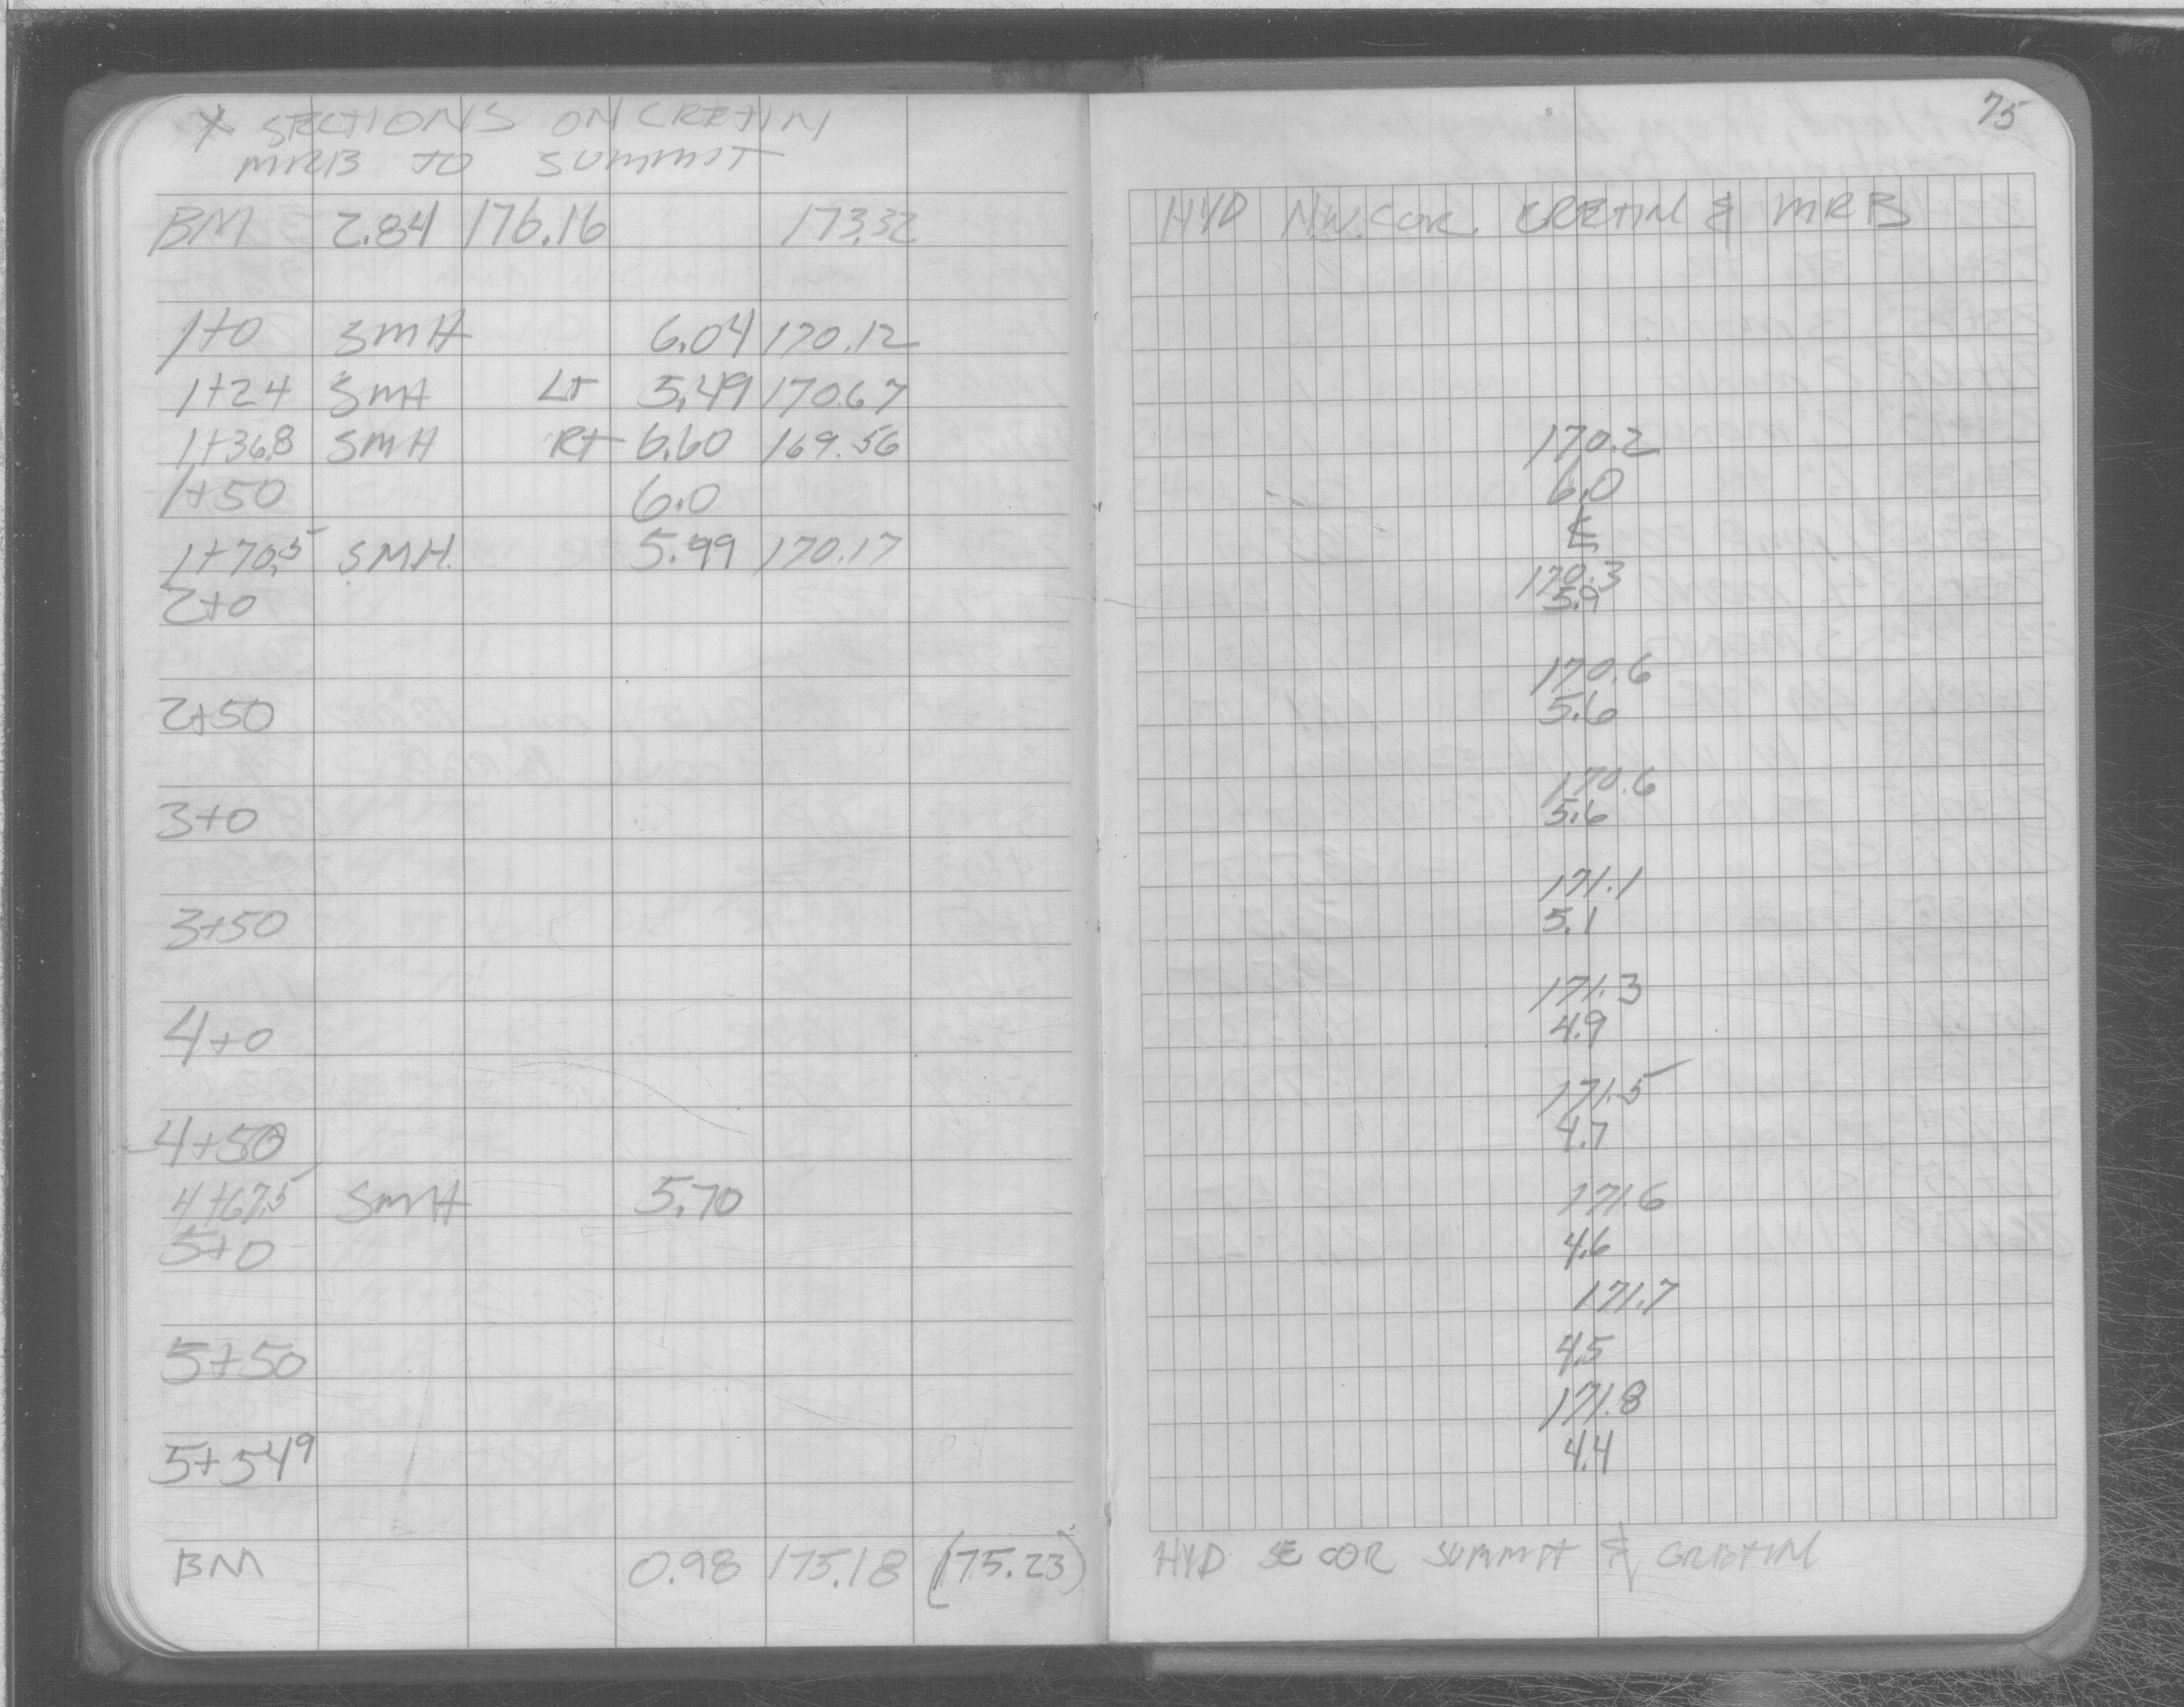 X SECTIONS ON CRETIN
MRB TO SUMMIT
BM 2.84 176.16 173.32
1+0 SMH 6.04 170.12
1+24 SMH LT 5.49 170.67
1+36.8 SMH RT 6.60 169.56
1+50 6.0
1+70.5 SMH. 5.99 170.17
2+0
2+50
3+0
3+50
4+0
4+50
4+67.5 SMH 5.70
5+0
5+50
5+549
BM 0.98 175.18 (175.23)
75
HYD N.W. COR. CRETIN & MRB
170.2
6.0
170.3
5.9
170.6
5.6
170.6
5.6
171.1
5.1
171.3
4.9
171.5
4.7
171.6
4.6
171.7
4.5
171.8
4.4
HYD SE COR SUMMIT & CRETIN